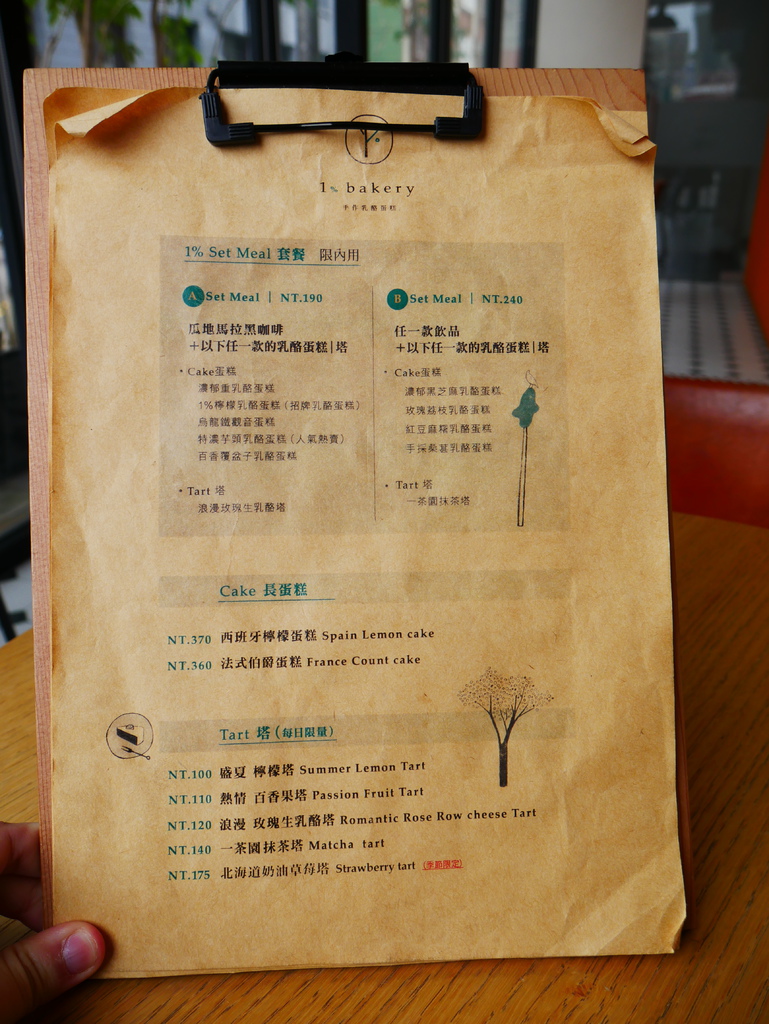 1% bakery
手作乳酪蛋糕
1% Set Meal 套餐 限內用
A Set Meal | NT.190
瓜地馬拉黑咖啡
+以下任一款的乳酪蛋糕|塔
• Cake蛋糕
濃郁重乳酪蛋糕
1%檸檬乳酪蛋糕(招牌乳酪蛋糕)
烏龍鐵觀音蛋糕
特濃芋頭乳酪蛋糕(人氣熱賣)
百香覆盆子乳酪蛋糕
• Tart 塔
浪漫玫瑰生乳酪塔
B Set Meal | NT.240
任一款飲品
+以下任一款的乳酪蛋糕|塔
• Cake蛋糕
濃郁黑芝麻乳酪蛋糕
玫瑰荔枝乳酪蛋糕
紅豆麻糬乳酪蛋糕
手採桑葚乳酪蛋糕
• Tart 塔
一茶園抹茶塔
Cake 長蛋糕
NT.370 西班牙檸檬蛋糕 Spain Lemon cake
NT.360 法式伯爵蛋糕 France Count cake
Tart 塔(每日限量)
NT.100 盛夏 檸檬塔 Summer Lemon Tart
NT.110 熱情 百香果塔 Passion Fruit Tart
NT.120 浪漫 玫瑰生乳酪塔 Romantic Rose Row cheese Tart
NT.140 一茶園抹茶塔 Matcha tart
NT.175 北海道奶油草莓塔 Strawberry tart (季節限定)